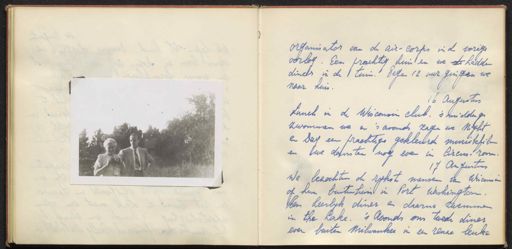 organisator van de air-corps in de vorige
oorlog. Een prachtig huis en we hadden
diner in de tuin. Tegen 12 uur gingen we
naar huis.
16 Augustus
Lunch in de Wisconsin club. 's middags
zwommen we en 's avonds zagen we Night
en Day een prachtige gekleurde muziekfilm
en we dansten nog even in Circus room.
17 Augustus
We bezochten de rijkste mensen van Wisconsin
op hun buitenhuis in Port Washington.
Een heerlijk diner en daarna zwemmen
in the Lake. 's Avonds ons diner
even buiten Milwaukee in een leuke